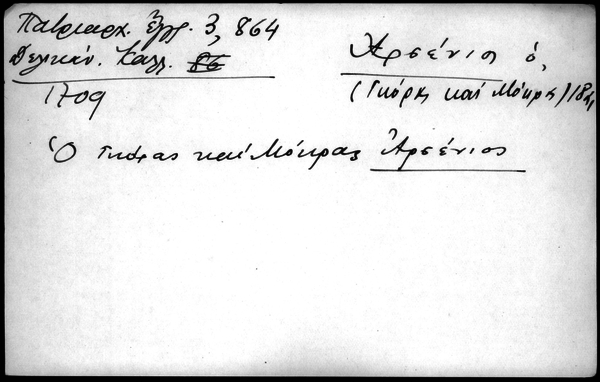 Πατριαρχ. ἔγγρ. 3, 864
Δελικάν. Καλλ.
1709
Ἀρσένιος ὁ,
(Γκόρας καὶ Μόκρας) 18
Ὁ Γκόρας καὶ Μόκρας Ἀρσένιος